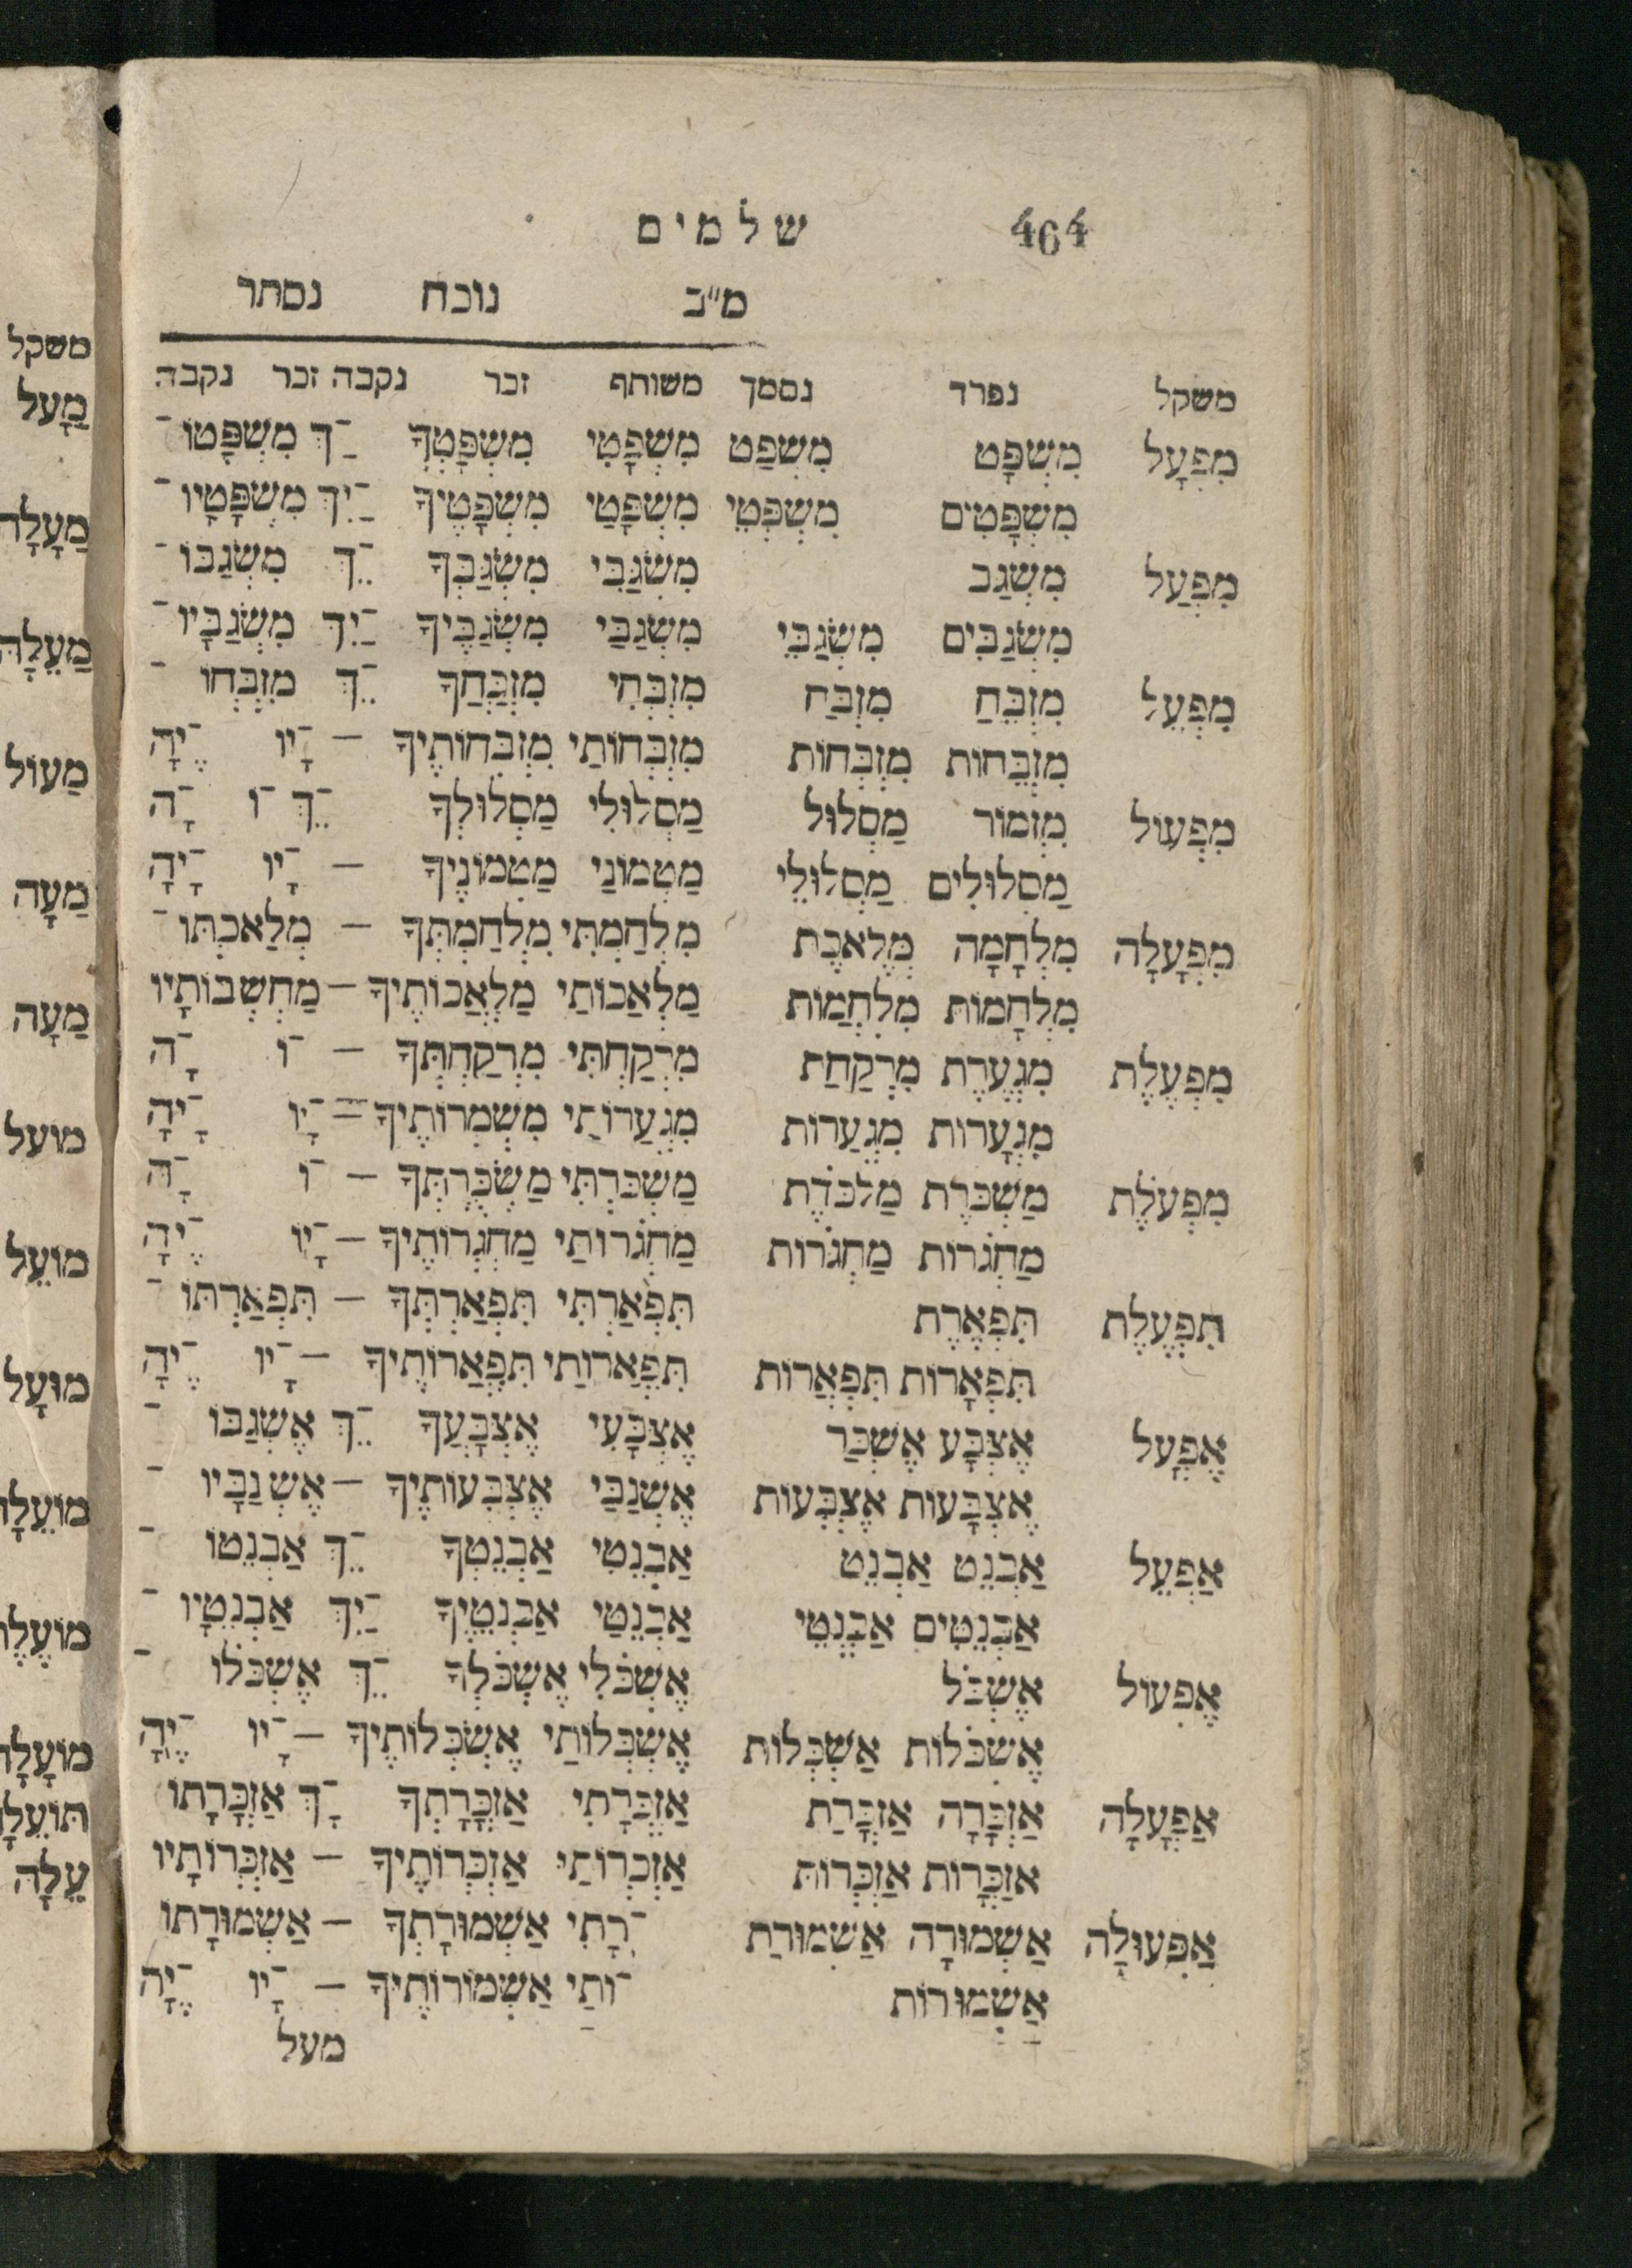 464 שלמים
מ"ב נוכח נסתר
משקל נפרד נסמך משותף זכר נקבה זכר נקבה
מִפְעָל מִשְׁפָּט מִשְׁפַּט מִשְׁפָּטִי מִשְׁפָּטְךָ ־ַךְ מִשְׁפָּטוֹ ־
מִשְׁפָּטִים מִשְׁפְּטֵי מִשְׁפָּטַי מִשְׁפָּטֶיךָ ־ַיִךְ מִשְׁפָּטָיו ־
מִפְעַל מִשְׂגַב מִשְׂגַּבִּי מִשְׂגַּבְּךָ ־ֵךְ מִשְׂגַבּוֹ ־
מִשְׂגַבִּים מִשְׂגַבֵּי מִשְׂגַבַּי מִשְׂגַבֶּיךָ ־ַיִךְ מִשְׂגַבָּיו ־
מִפְעֵל מִזְבֵּחַ מִזְבַּח מִזְבְּחִי מִזְבַּחֲךָ ־ֵךְ מִזְבְּחוֹ ־
מִזְבְּחוֹת מִזְבְּחוֹת מִזְבְּחוֹתַי מִזְבְּחוֹתֶיךָ — ־ָיו ־ֶיהָ
מִפְעוֹל מִזְמוֹר מַסְלוּל מַסְלוּלִי מַסְלוּלְךָ ־ֵךְ ־ו ־ָה
מַסְלוּלִים מַסְלוּלֵי מַטְמוֹנַי מַטְמוֹנֶיךָ — ־ָיו ־ָיהָ
מִפְעָלָה מִלְחָמָה מְלֶאכֶת מִלְחַמְתִּי מִלְחַמְתְּךָ — מְלַאכְתּוֹ ־
מִלְחָמוֹת מִלְחֲמוֹת מַלְאֲכוֹתַי מַלְאֲכוֹתֶיךָ — מַחְשְׁבוֹתָיו
מִפְעֶלֶת מִגְעֶרֶת מִרְקַחַת מִרְקַחְתִּי מִרְקַחְתְּךָ — ־ו ־ָה
מִגְעָרוֹת מִגְעֲרוֹת מִגְעֲרוֹתַי מִשְׁמְרוֹתֶיךָ — ־ָיו ־ָיהָ
מִפְעֹלֶת מַשְׂכֹּרֶת מַלְכֹּדֶת מַשְׂכֻּרְתִּי מַשְׂכֻּרְתְּךָ — ־ו ־ָה
מַחְגֹּרוֹת מַחְגֹּרוֹת מַחְגֹּרוֹתַי מַחְגְרוֹתֶיךָ — ־ָיו ־ֶיהָ
תִפְעֶלֶת תִּפְאֶרֶת תִּפְאַרְתִּי תִּפְאַרְתְּךָ — תִּפְאַרְתּוֹ ־
תִּפְאָרוֹת תִּפְאֲרוֹת תִּפְאֲרוֹתַי תִּפְאֲרוֹתֶיךָ — ־ָיו ־ֶיהָ
אֶפְעָל אֶצְבָּע אֶשְׁכַּר אֶצְבָּעִי אֶצְבָּעֲךָ ־ֵךְ אֶשְׂגַבּוֹ ־
אֶצְבָּעוֹת אֶצְבְּעוֹת אֶשְׂגַבַּי אֶצְבְּעוֹתֶיךָ — אֶשְׂגַבָּיו ־
אַפְעֵל אַבְנֵט אַבְנֵט אַבְנֵטִי אַבְנֵטְךָ ־ֵךְ אַבְנֵטוֹ ־
אַבְנֵטִים אַבְנֵטֵי אַבְנֵטַי אַבְנֵטֶיךָ ־ַיִךְ אַבְנֵטָיו ־
אֶפְעוֹל אֶשְׁכֹּל אֶשְׁכֹּלִי אֶשְׁכֹּלְךָ ־ֵךְ אֶשְׁכֹּלוֹ ־
אֶשְׁכֹּלוֹת אַשְׁכְּלוֹת אֶשְׁכְּלוֹתַי אֶשְׁכְּלוֹתֶיךָ — ־ָיו ־ֶיהָ
אַפְעָלָה אַזְכָּרָה אַזְכָּרַת אַזְכָּרָתִי אַזְכָּרָתְךָ ־ָךְ אַזְכָּרָתוֹ
אַזְכָּרוֹת אַזְכְּרוֹת אַזְכְרוֹתַי אַזְכְּרוֹתֶיךָ — אַזְכְּרוֹתָיו
אַפְעוּלָה אַשְׁמוּרָה אַשְׁמוּרַת ־רָתִי אַשְׁמוּרָתְךָ — אַשְׁמוּרָתוֹ
אַשְׁמוּרוֹת ־וֹתַי אַשְׁמוֹרוֹתֶיךָ — ־ָיו ־ֶיהָ
מעל
משקל
מַעַל
מַעֲלָה
מַעֵלָה
מַעוֹל
מַעָה
מַעָה
מועל
מוֹעֵל
מוּעָל
תּוֹעֵלָ
עֵלָה